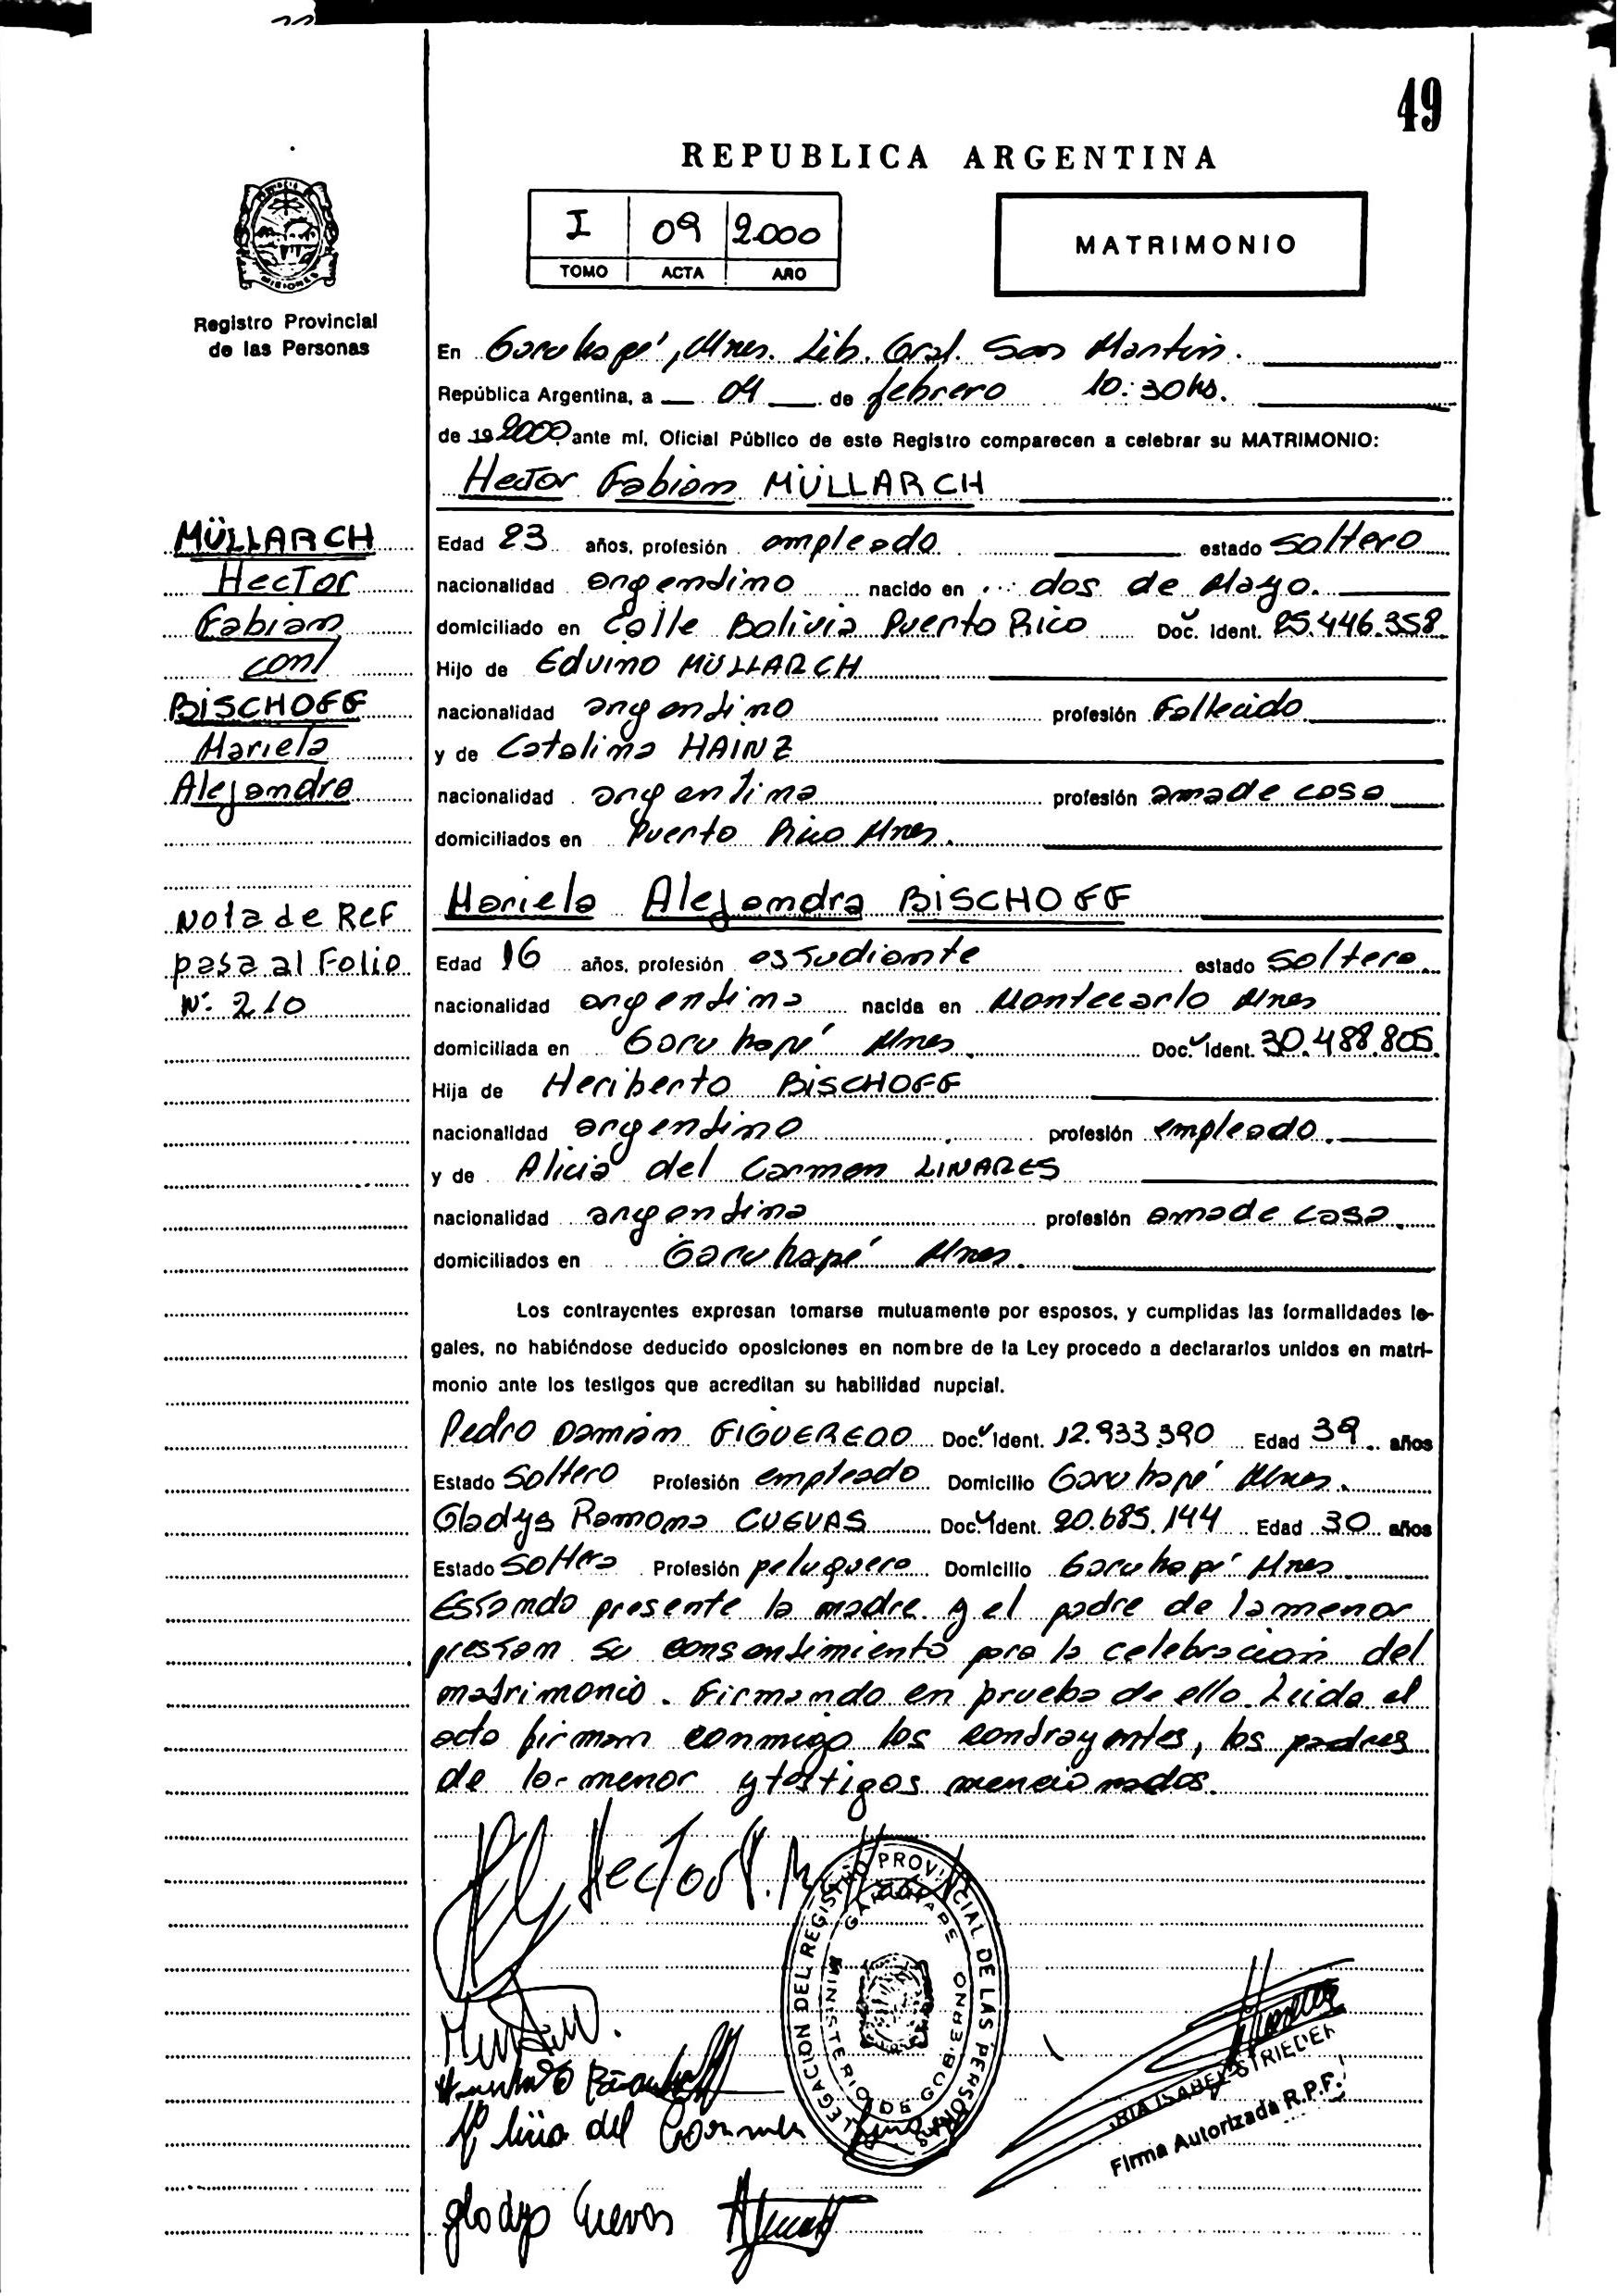 49
REPUBLICA ARGENTINA
I 09 2000
TOMO ACTA AÑO
MATRIMONIO
MISIONES
Registro Provincial
de las Personas
En Garuhapé, Mnes. Lib. Gral. San Martin.
República Argentina, a 04 de febrero 10:30 hs.
de 19 2000 ante mí, Oficial Público de este Registro comparecen a celebrar su MATRIMONIO:
Hector Fabian MÜLLARCH
MÜLLARCH
Hector
Fabian
con/
BISCHOFF
Mariela
Alejandra
Nota de Ref
pasa al Folio
Nº 210
Edad 23 años, profesión empleado estado soltero
nacionalidad argentino nacido en dos de Mayo.
domiciliado en Calle Bolivia Puerto Rico Doc. Ident. 25.446.358
Hijo de Eduino MÜLLARCH
nacionalidad argentino profesión Fallecido
y de Catalina HAINZ
nacionalidad argentina profesión ama de casa
domiciliados en Puerto Rico Mnes.
Mariela Alejandra BISCHOFF
Edad 16 años, profesión estudiante estado soltera
nacionalidad argentina nacida en Montecarlo Mnes
domiciliada en Garuhapé Mnes. Doc. Ident. 30.488.805.
Hija de Heriberto BISCHOFF
nacionalidad argentino profesión empleado.
y de Alicia del Carmen LINARES
nacionalidad argentina profesión ama de casa.
domiciliados en Garuhapé Mnes.
Los contrayentes expresan tomarse mutuamente por esposos, y cumplidas las formalidades le-
gales, no habiéndose deducido oposiciones en nombre de la Ley procedo a declararlos unidos en matri-
monio ante los testigos que acreditan su habilidad nupcial.
Pedro Damián FIGUEREDO Doc. Ident. 12.933.390 Edad 39 años
Estado soltero Profesión empleado Domicilio Garuhapé Mnes.
Gladys Ramona CUEVAS Doc. Ident. 20.685.144 Edad 30 años
Estado soltera Profesión peluquera Domicilio Garuhapé Mnes
Estando presente la madre y el padre de la menor
prestan su consentimiento para la celebración del
matrimonio. Firmando en prueba de ello. Leida el
acta firman conmigo los contrayentes, los padres
de la menor y testigos mencionados.
Hector F.
DELEGACION DEL REGISTRO PROVINCIAL DE LAS PERSONAS
GARUHAPE
MINISTERIO DE GOBIERNO
Alicia del Carmen
RIA ISABEL STRIEDER
Firma Autorizada R.P.F.
Gladys Cuevas